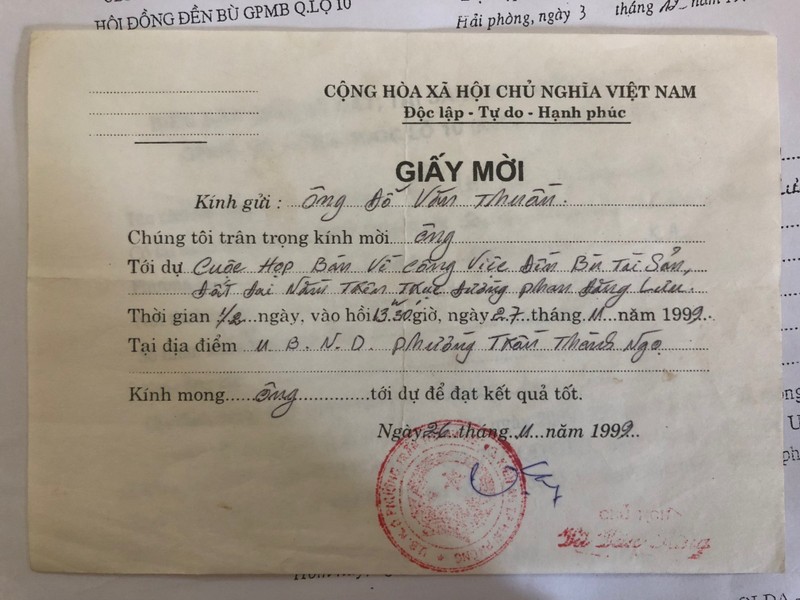 HỘI ĐỒNG ĐỀN BÙ GPMB Q.LỘ 10
Hải phòng, ngày 3 tháng 12 năm
CỘNG HÒA XÃ HỘI CHỦ NGHĨA VIỆT NAM
Độc lập - Tự do - Hạnh phúc
GIẤY MỜI
Kính gửi : Ông Đỗ Văn Thuấn.
Chúng tôi trân trọng kính mời ông
Tới dự Cuộc Họp Bàn Về Công Việc Đền Bù Tài Sản,
Đất Đai Nằm Trên Trục Đường Phan Đăng Lưu.
Thời gian 1/2 ngày, vào hồi 13.30 giờ, ngày 27 tháng 11 năm 1999.
Tại địa điểm U.B.N.D. Phường Trần Thành Ngọ
Kính mong ông tới dự để đạt kết quả tốt.
Ngày 26 tháng 11 năm 1999.